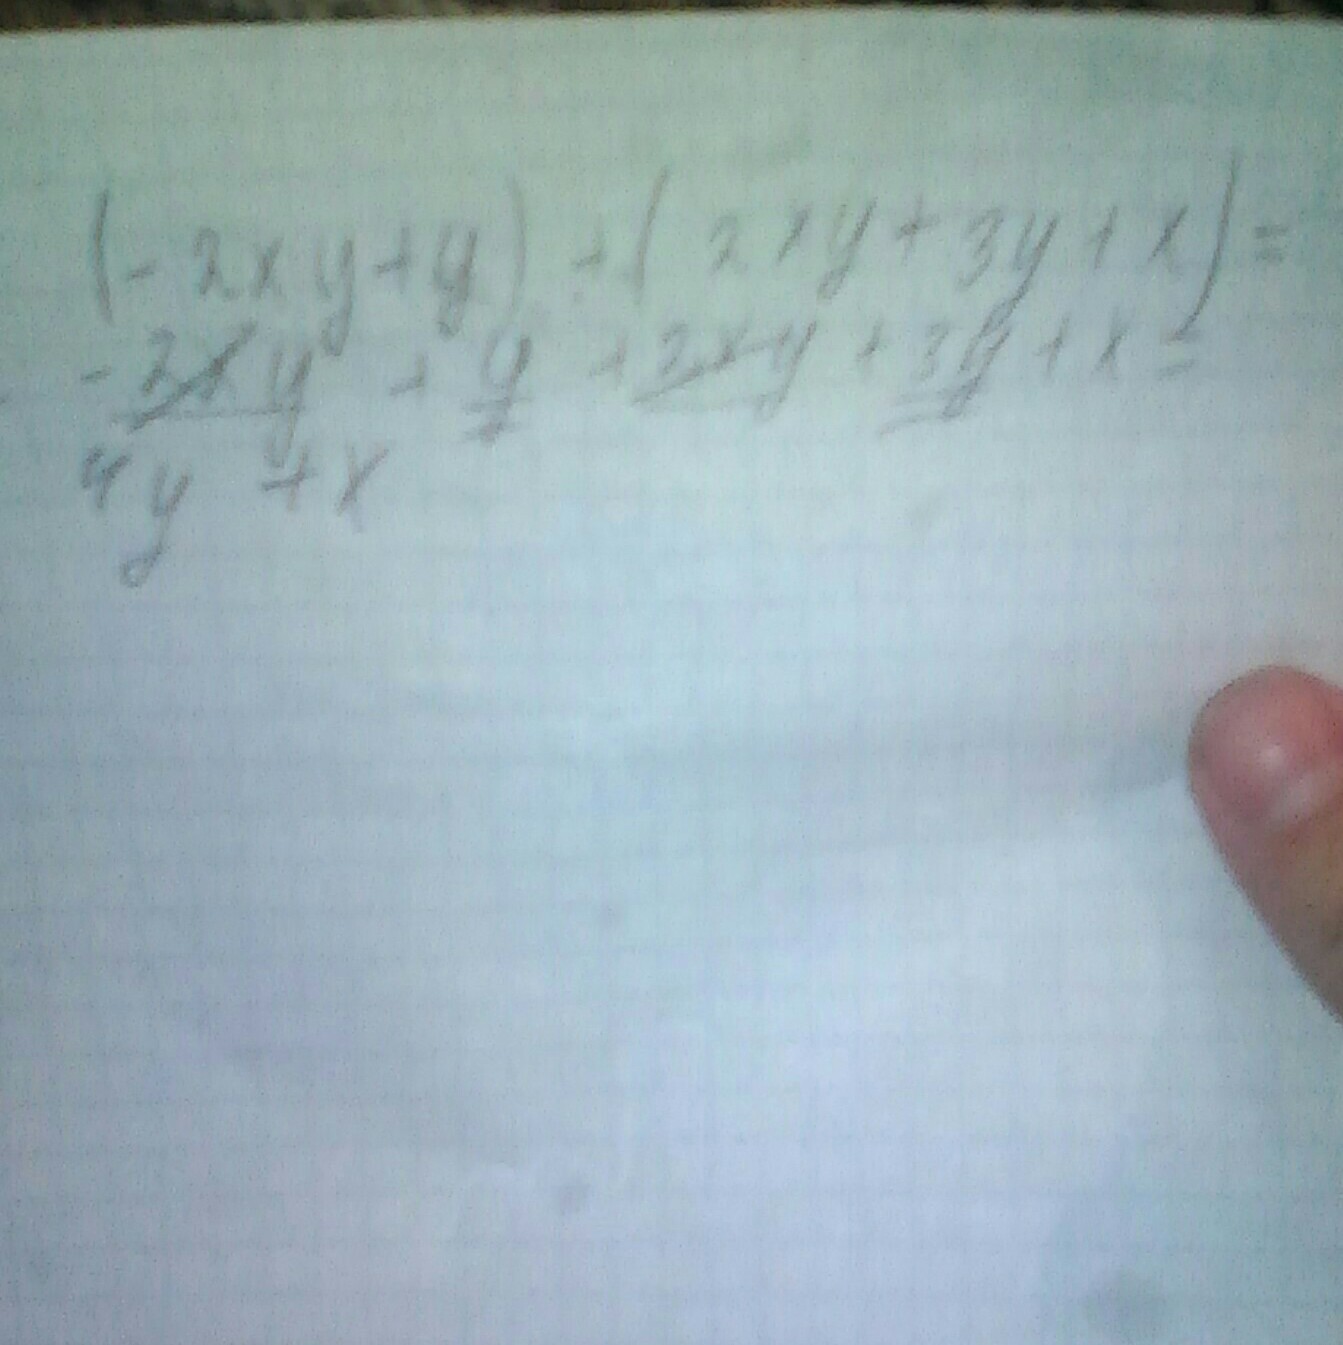 (-2xy+y)+(2xy+3y+x)=
-2xy+y+2xy+3y+x=
4y+x